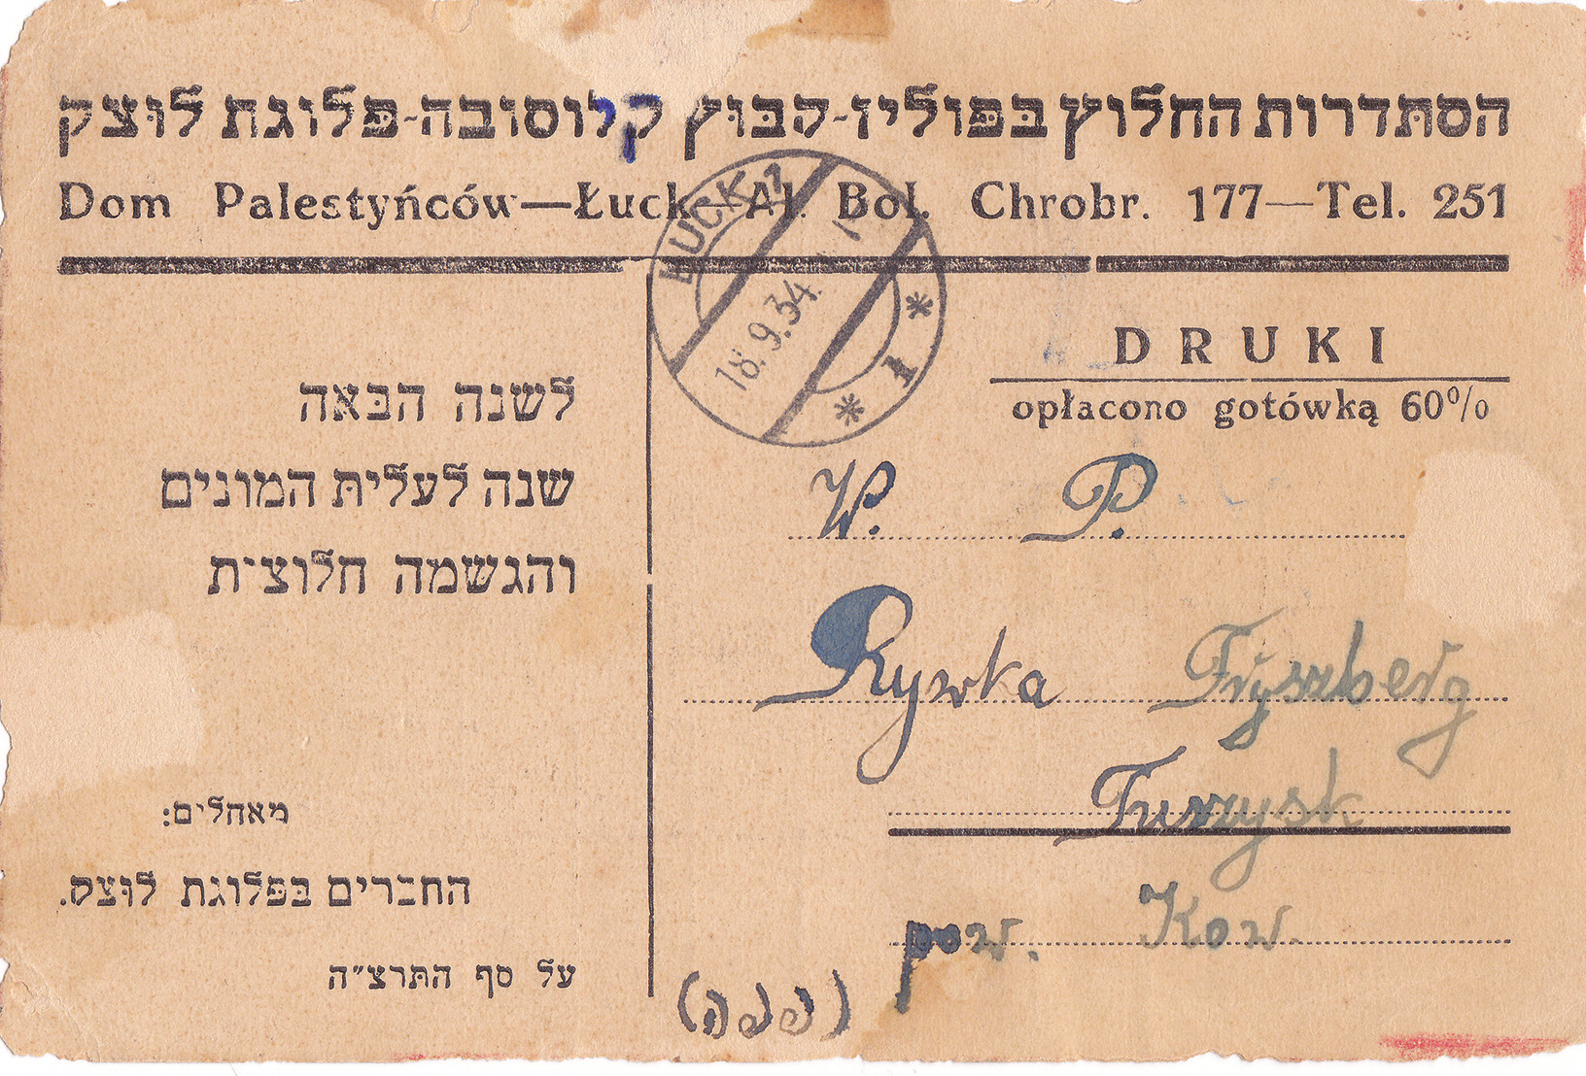 הסתדרות החלוץ בפולין-קבוץ קלוסובה-פלוגת לוצק
Dom Palestyńców—Łuck—Al. Bol. Chrobr. 177—Tel. 251
ŁUCK 1
18.9.34.
* 1 *
DRUKI
opłacono gotówką 60%
לשנה הבאה
שנה לעלית המונים
והגשמה חלוצית
מאהלים:
החברים בפלוגת לוצק.
על סף התרצ״ה
W. P.
Rywka Fryszberg
Turzysk
pow. Kow.